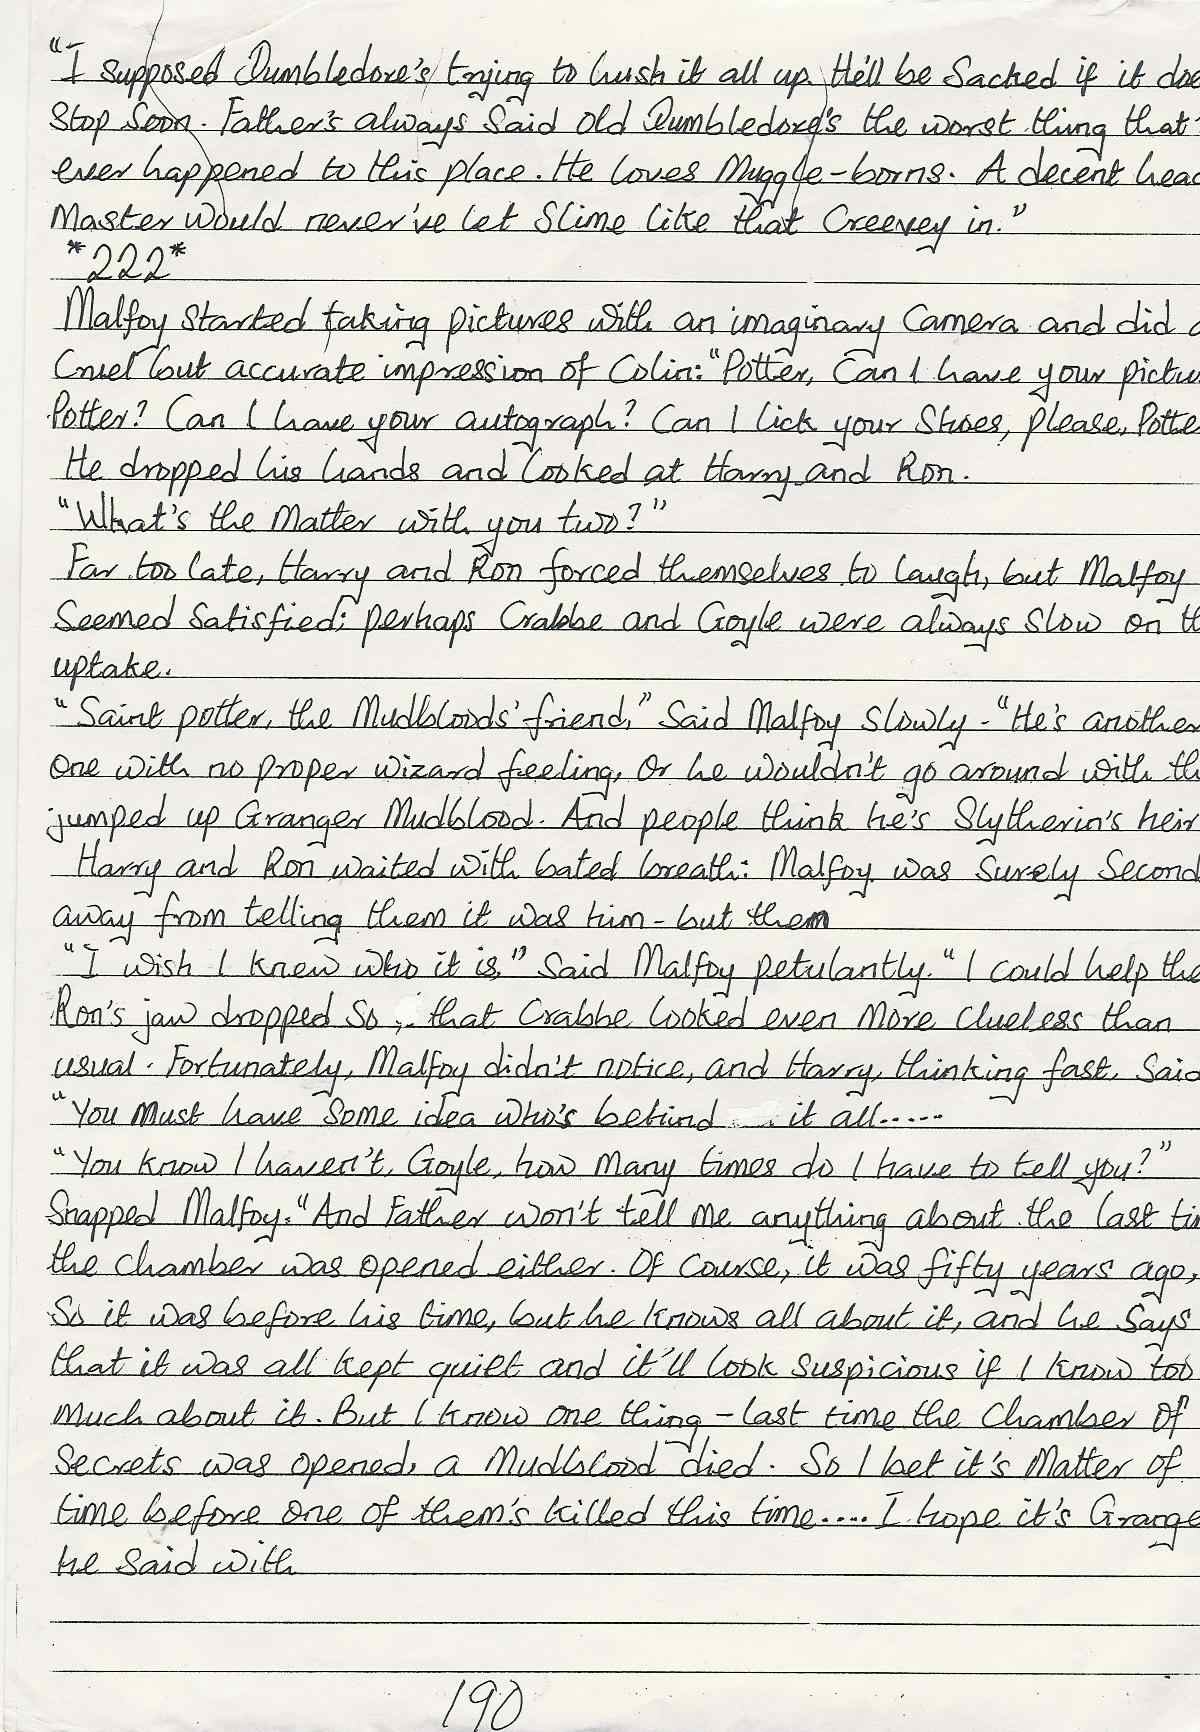 "I supposed Dumbledore's trying to hush it all up. He'll be Sacked if it doe
Stop Soon. Father's always Said old Dumbledore's the worst thing that's
ever happened to this place. He loves Muggle-borns. A decent head
Master would never've let Slime like that Creevey in."
*222*
Malfoy started taking pictures with an imaginary Camera and did a
Cruel but accurate impression of Colin: "Potter, Can I have your pictu
Potter? Can I have your autograph? Can I lick your Shoes, please, Potte
He dropped his hands and looked at Harry and Ron.
"What's the Matter with you two?"
Far too late, Harry and Ron forced themselves to laugh, but Malfoy
Seemed Satisfied; perhaps Crabbe and Goyle were always Slow on th
uptake.
"Saint potter, the Mudbloods' friend," Said Malfoy Slowly - "He's another
One with no proper wizard feeling, Or he wouldn't go around with th
jumped up Granger Mudblood. And people think he's Slytherin's heir
Harry and Ron waited with bated breath: Malfoy was Surely Second
away from telling them it was him - but them
"I wish I knew who it is," Said Malfoy petulantly. "I could help the
Ron's jaw dropped So that Crabbe looked even More Clueless than
usual. Fortunately, Malfoy didn't notice, and Harry, thinking fast, Said
"You Must have Some idea who's behind it all.....
"You know I haven't, Goyle, how Many times do I have to tell you?"
Snapped Malfoy. "And Father won't tell Me anything about the last ti
the Chamber was opened either. Of Course, it was fifty years ago,
So it was before his time, but he knows all about it, and he Says
that it was all kept quiet and it'll look Suspicious if I know too
Much about it. But I know one thing - last time the Chamber of
Secrets was opened, a Mudblood died. So I bet it's Matter of
time before one of them's killed this time.... I hope it's Grange
he Said with
190